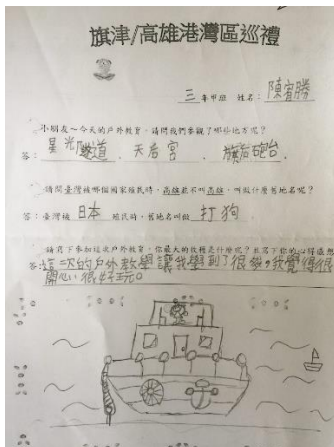 旗津/高雄港灣區巡禮
三年甲班 姓名:陳宥勝
小朋友~今天的戶外教育,請問我們參觀了哪些地方呢?
答:星光隧道、天后宮、旗津砲台.
請問臺灣被哪個國家殖民時,高雄並不叫高雄,叫做什麼舊地名呢?
答:臺灣被 日本 殖民時,舊地名叫做 打狗
請寫下參加這次戶外教育,你最大的收穫是什麼呢?並寫下你的心得感想
答:這一次的戶外教學讓我學到了很多,我覺得很
開心很好玩。